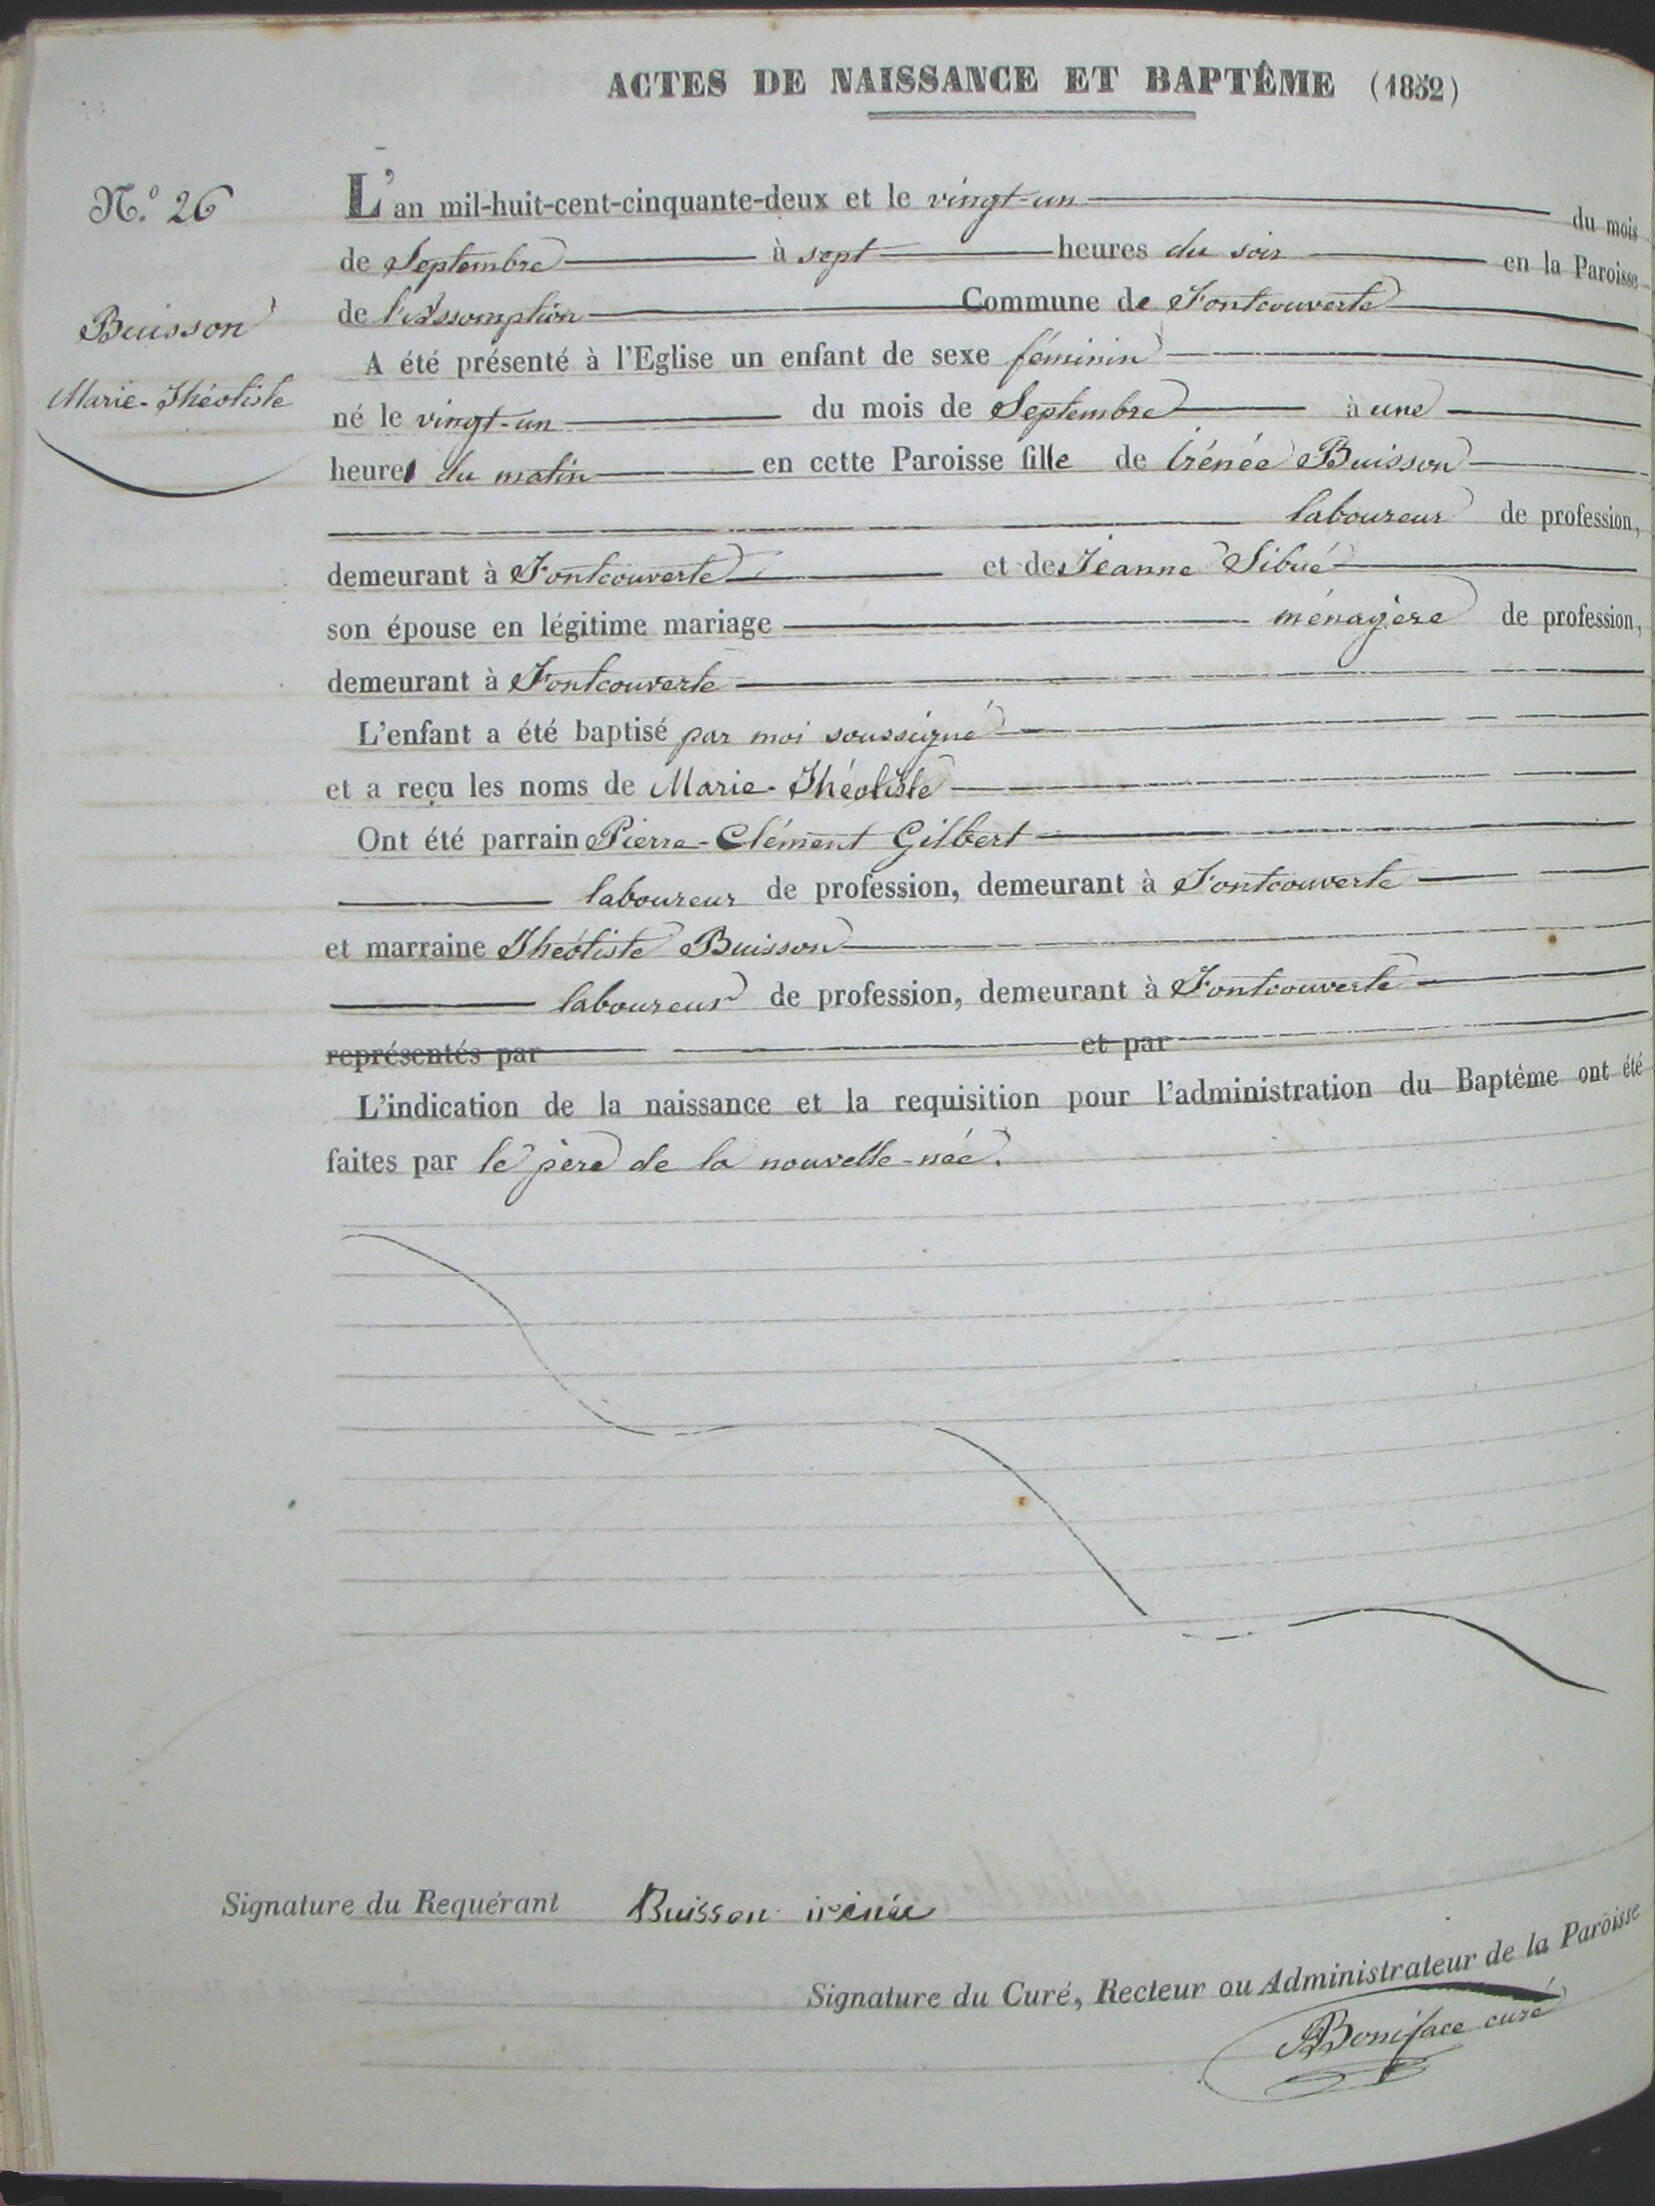 ACTES DE NAISSANCE ET BAPTÊME (1852)
N.o 26
Buisson
Marie-Théotiste
L'an mil-huit-cent-cinquante-deux et le vingt-un du mois
de Septembre à sept heures du soir en la Paroisse
de l'Assomption Commune de Fontcouverte
A été présenté à l'Eglise un enfant de sexe féminin
né le vingt-un du mois de Septembre à une
heure du matin en cette Paroisse fille de Irénée Buisson
laboureur de profession,
demeurant à Fontcouverte et de Jeanne Sibué
son épouse en légitime mariage ménagère de profession,
demeurant à Fontcouverte
L'enfant a été baptisé par moi soussigné
et a reçu les noms de Marie-Théotiste
Ont été parrain Pierre-Clément Gilbert
laboureur de profession, demeurant à Fontcouverte
et marraine Théotiste Buisson
laboureur de profession, demeurant à Fontcouverte
représentés par et par
L'indication de la naissance et la requisition pour l'administration du Baptême ont été
faites par le père de la nouvelle-née.
Signature du Requérant Buisson irénée
Signature du Curé, Recteur ou Administrateur de la Paroisse
Boniface curé